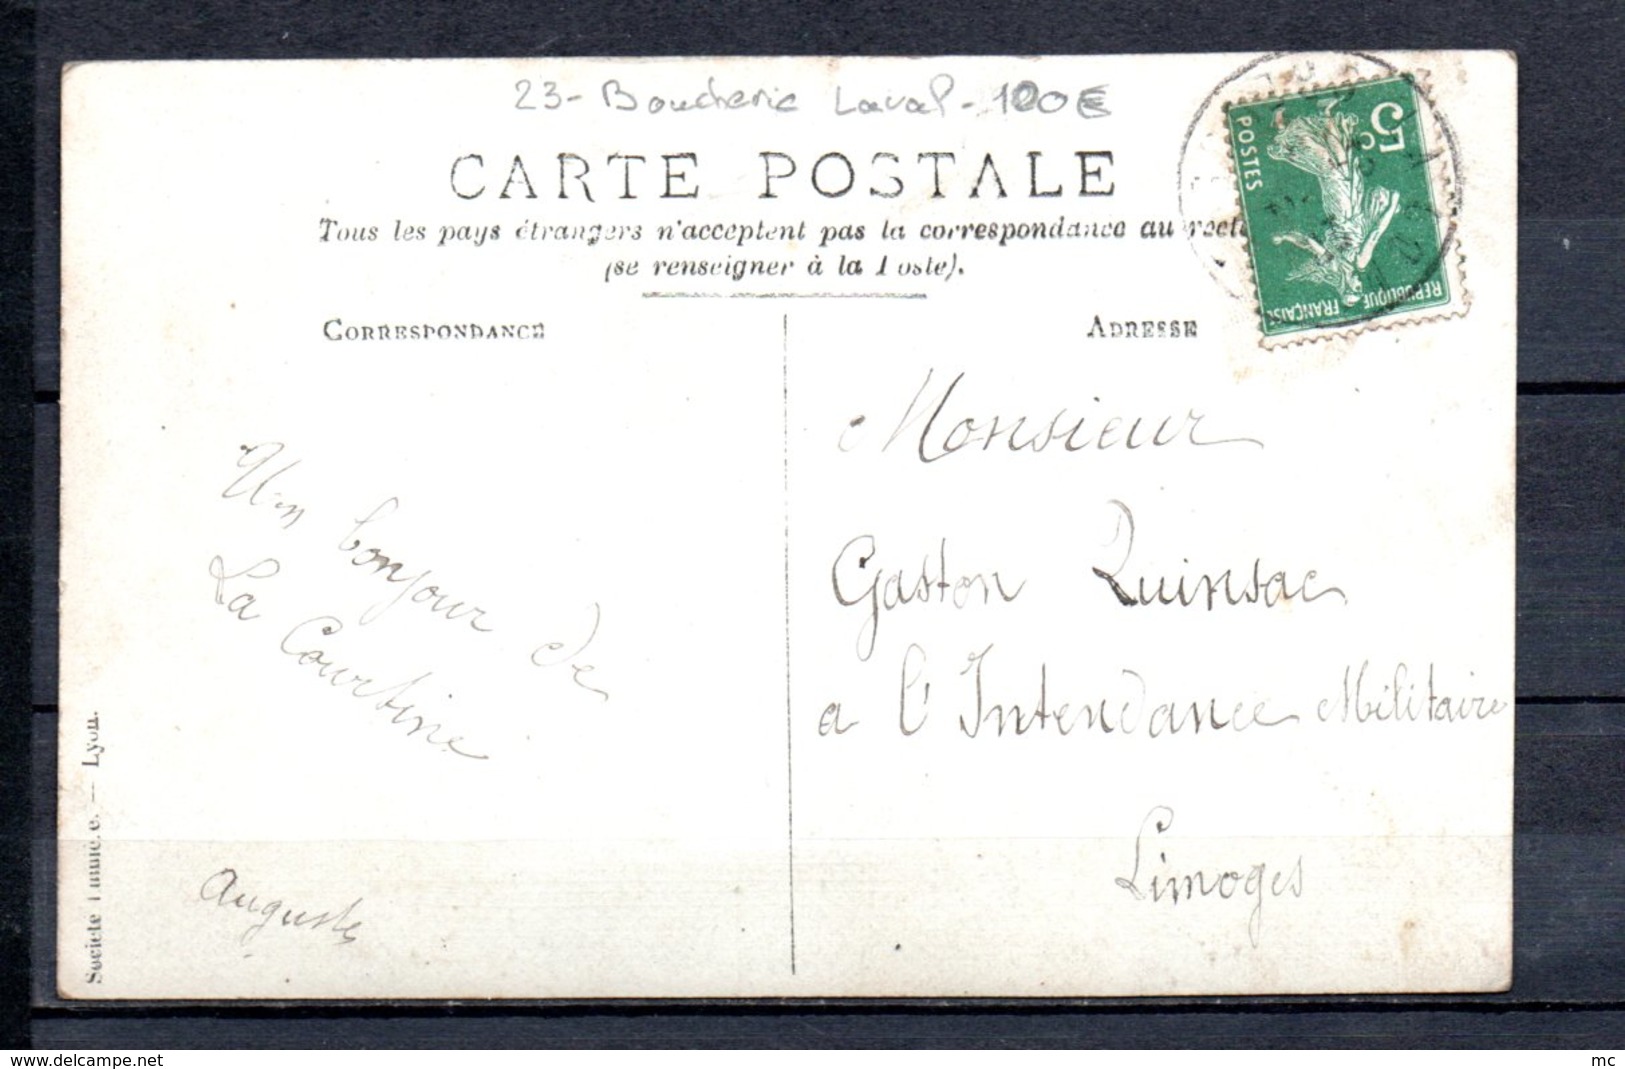 23- Boucherie Laval - 100€
CARTE POSTALE
Tous les pays étrangers n'acceptent pas la correspondance au recto
(se renseigner à la Poste).
CORRESPONDANCE
ADRESSE
5c
POSTES
REPUBLIQUE
FRANÇAISE
Un bonjour de
La Courtine
Auguste
Monsieur
Gaston Quinsac
a l'Intendance Militaire
Limoges
Société — Lyon.
www.delcampe.net
mc